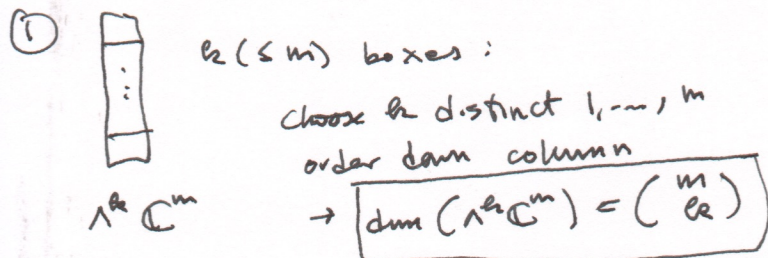 ① k (≤ m) boxes :
choose k distinct 1, ---, m
order down column
Λ^k ℂ^m → dim (Λ^k ℂ^m) = (m k)